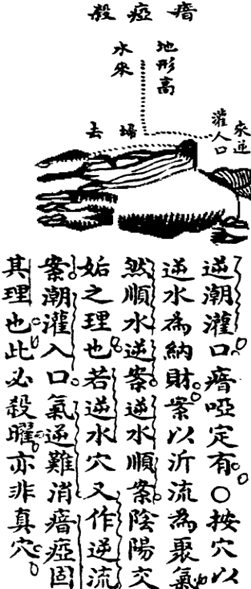 瘖瘂殺
地形高
水來
來逆
灌入口
去
逆潮灌口瘖啞定有○按穴以
逆水為納財案以沂流為聚氣
然順水逆案逆水順案陰陽交
姤之理也若逆水穴又作逆流
案潮灌入口氣逆難消瘖瘂固
其理也此必殺曜亦非真穴